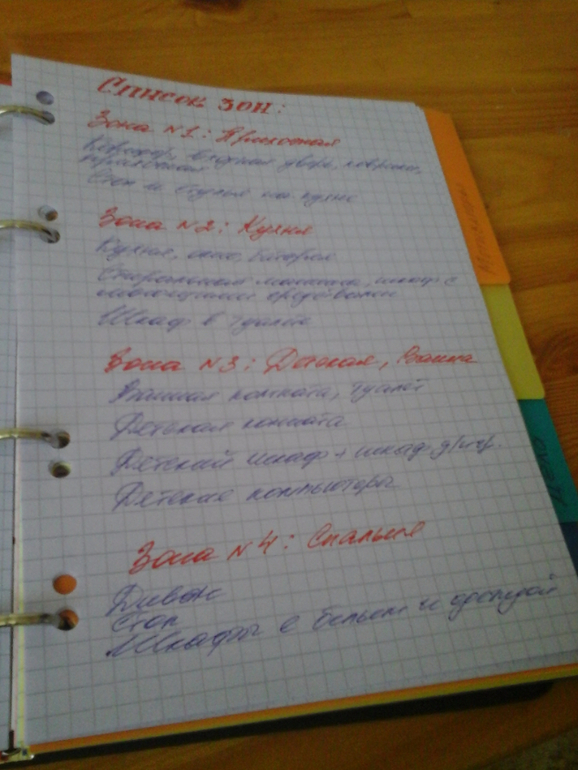 Список зон:
Зона №1: Прихожая
Коридор, входная дверь, коврики,
прихожая
Стол и стулья на кухне
Зона №2: Кухня
Кухня, окно, батарея
Стиральная машина, шкаф с
моющими средствами
Шкаф в туалете
Зона №3: Детская, Ванна
Ванная комната, туалет
Детская комната
Детский шкаф + шкаф
Детские компьютеры
Зона №4: Спальня
Диван
Стол
Шкафы с бельем и одеждой